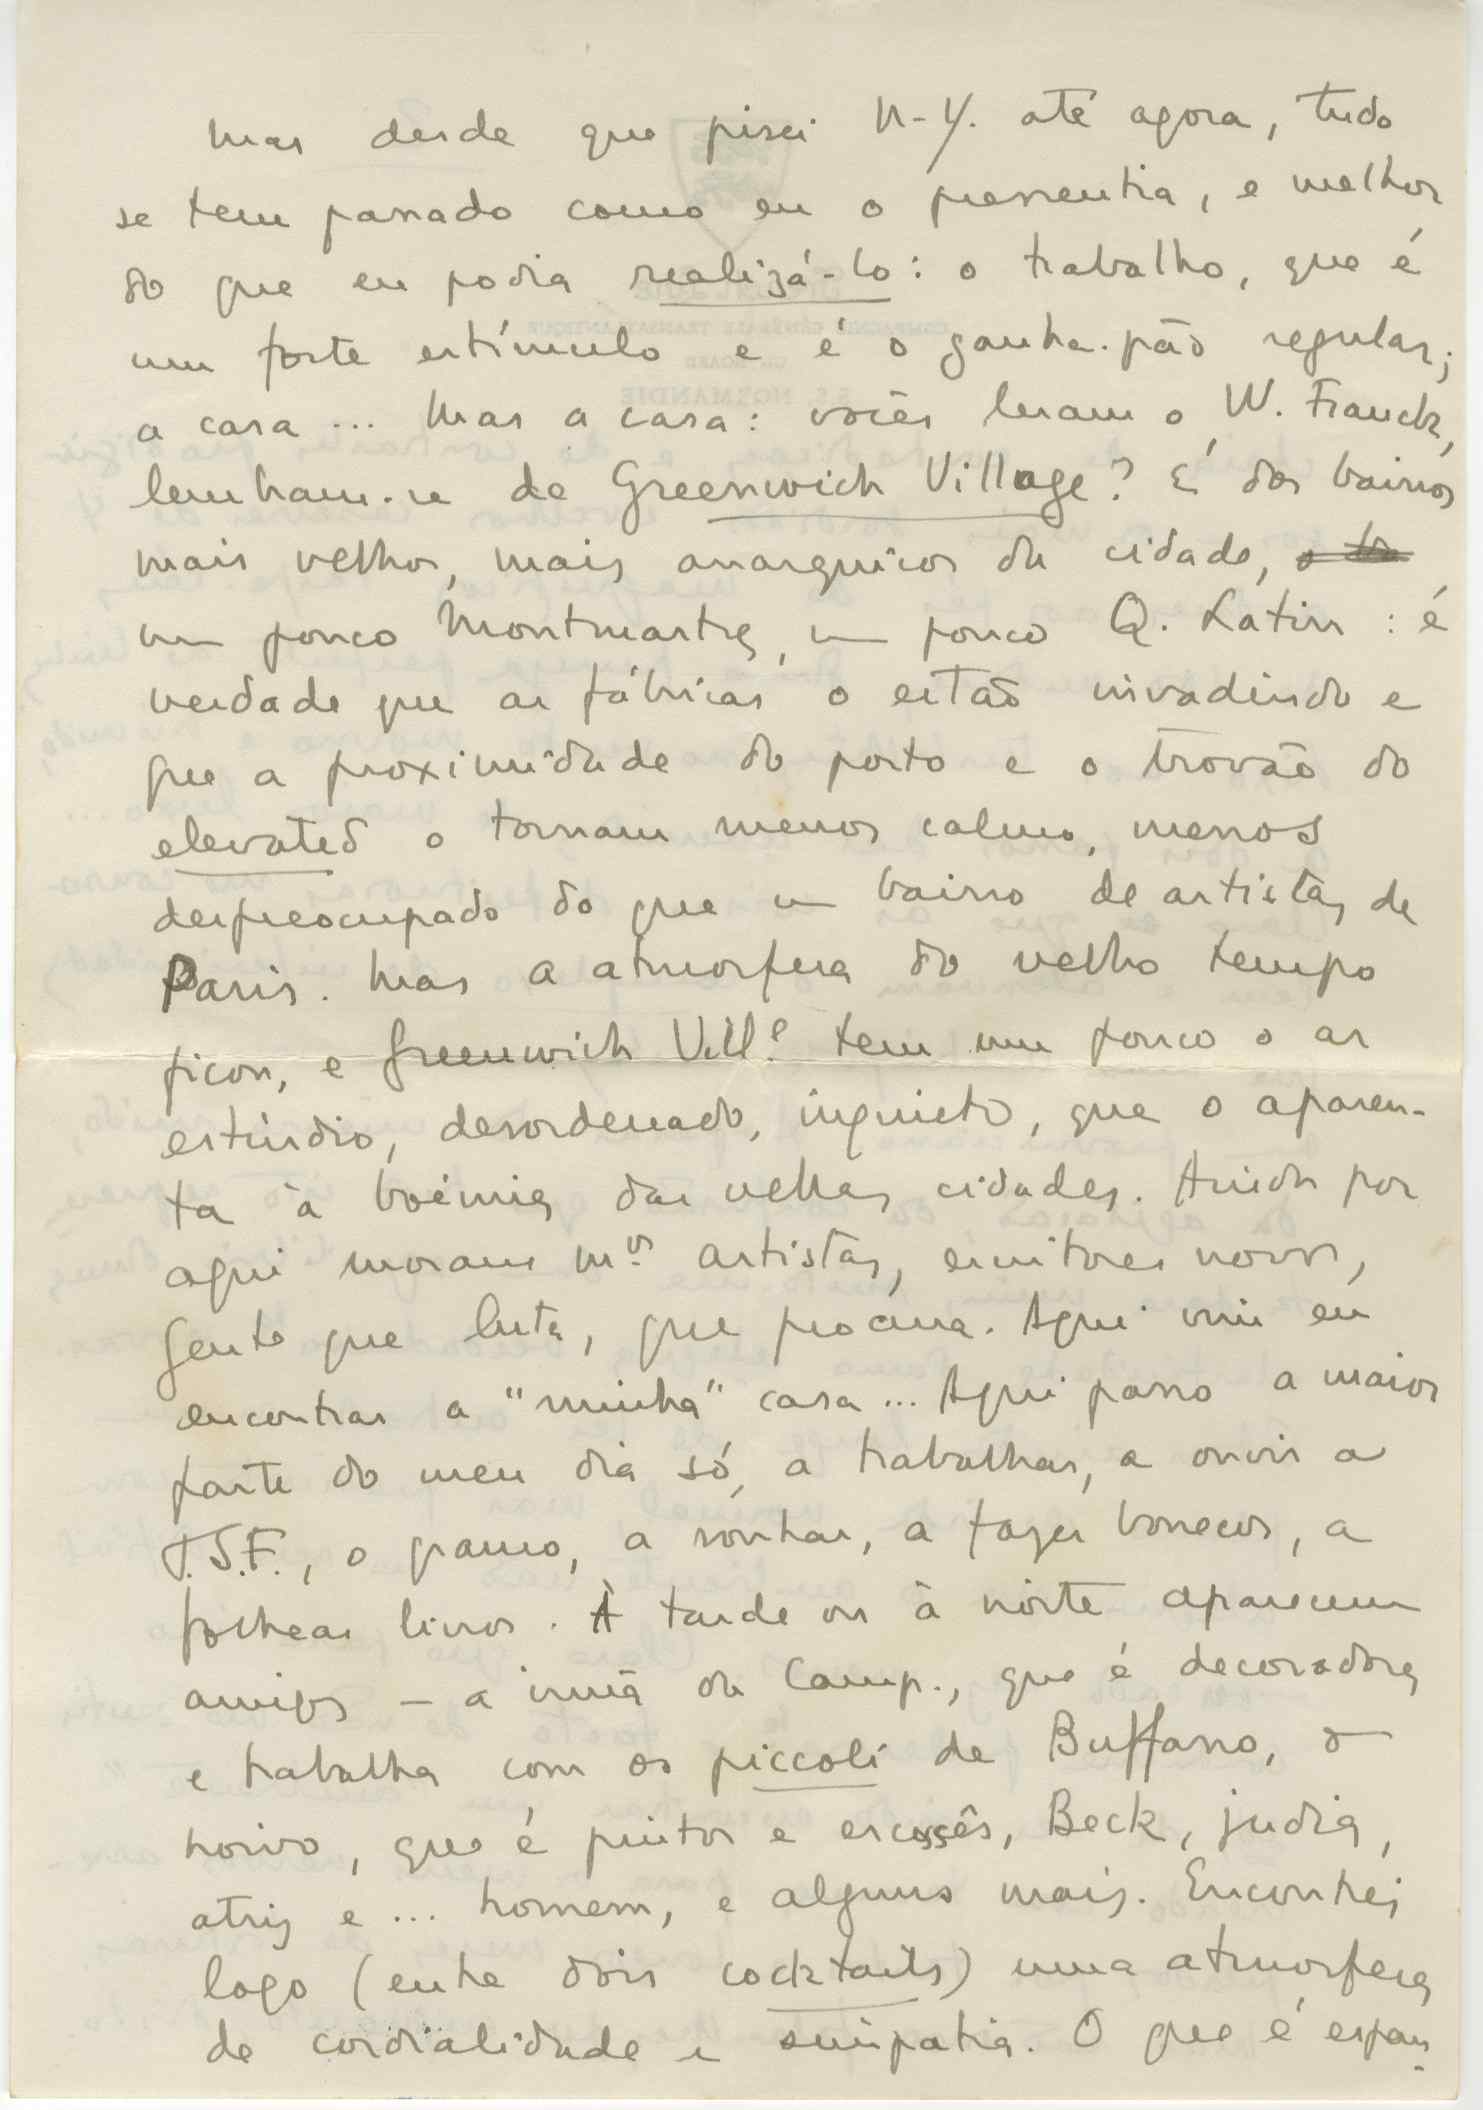 Mas desde que pisei N-Y. até agora, tudo
se tem passado como eu o pressentia, e melhor
do que eu podia realizá-lo: o trabalho, que é
um forte estímulo e é o ganha-pão regular;
a casa... Mas a casa: vocês leram o W. Franck,
lembram-se de Greenwich Village? É dos bairros
mais velhos, mais anarquicos da cidade,
um pouco Montmartre, um pouco Q. Latin: é
verdade que as fábricas o estão invadindo e
que a proximidade do porto e o trovão do
elevated o tornam menos calmo, menos
despreocupado do que um bairro de artistas de
Paris. Mas a atmosfera do velho tempo
ficou, e Greenwich Vill.e tem um pouco o ar
estúrdio, desordenado, inquieto, que o aparen-
ta à boémia das velhas cidades. Ainda por
aqui moram m.os artistas, escritores novos,
gente que luta, que procura. Aqui vim eu
encontrar a "minha" casa... Aqui passo a maior
parte do meu dia só, a trabalhar, a ouvir a
T.S.F., o gramo, a sonhar, a fazer bonecos, a
folhear livros. À tarde ou à noite aparecem
amigos – a irmã da Camp., que é decoradora
e trabalha com os piccoli de Buffano, o
noivo, que é pintor e escossês, Beck, judia,
atriz e... homem, e alguns mais. Encontrei
logo (entre dois cocktails) uma atmosfera
de cordialidade e simpatia. O que é espan-